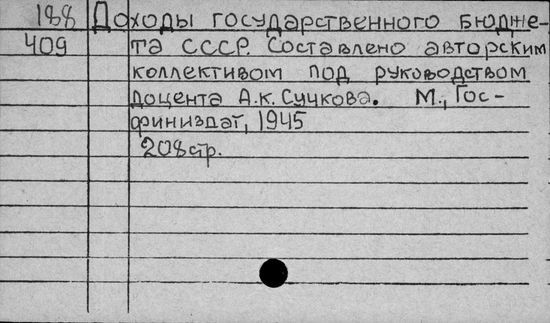 188 Доходы государственного бюдже-
409 та СССР. Составлено авторским
коллективом под руководством
доцента А.К. Сучкова. М., Гос-
финиздат, 1945
208стр.